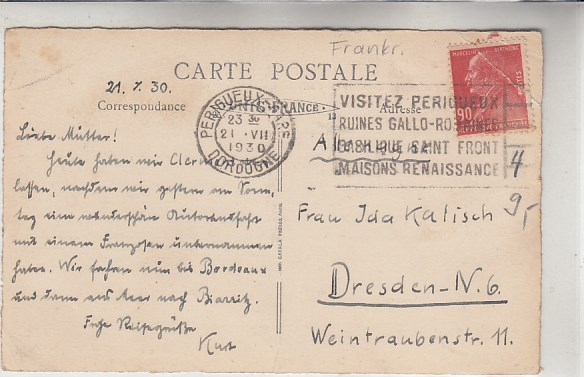 Frankr.
CARTE POSTALE
21.7.30.
Correspondance
Adresse
PERIGUEUX-GARE
23 30
21 ·VII
1930
DORDOGNE
VISITEZ PERIGUEUX
RUINES GALLO-ROMAINES
BASILIQUE SAINT FRONT
MAISONS RENAISSANCE
MARCELIN BERTHELOT
POSTES
90
Allemagne
4
9,-
Liebe Mutter!
Heute haben wir
lassen, nachdem wir gestern am Sonn-
tag eine wunderschöne Autorundfahrt
mit einem Franzosen unternommen
haben. Wir fahren nun bis Bordeaux
und dann ans Meer nach Biarritz.
Frohe Reisegrüße
Kurt
Frau Ida Kalisch
Dresden-N.6.
Weintraubenstr. 11.